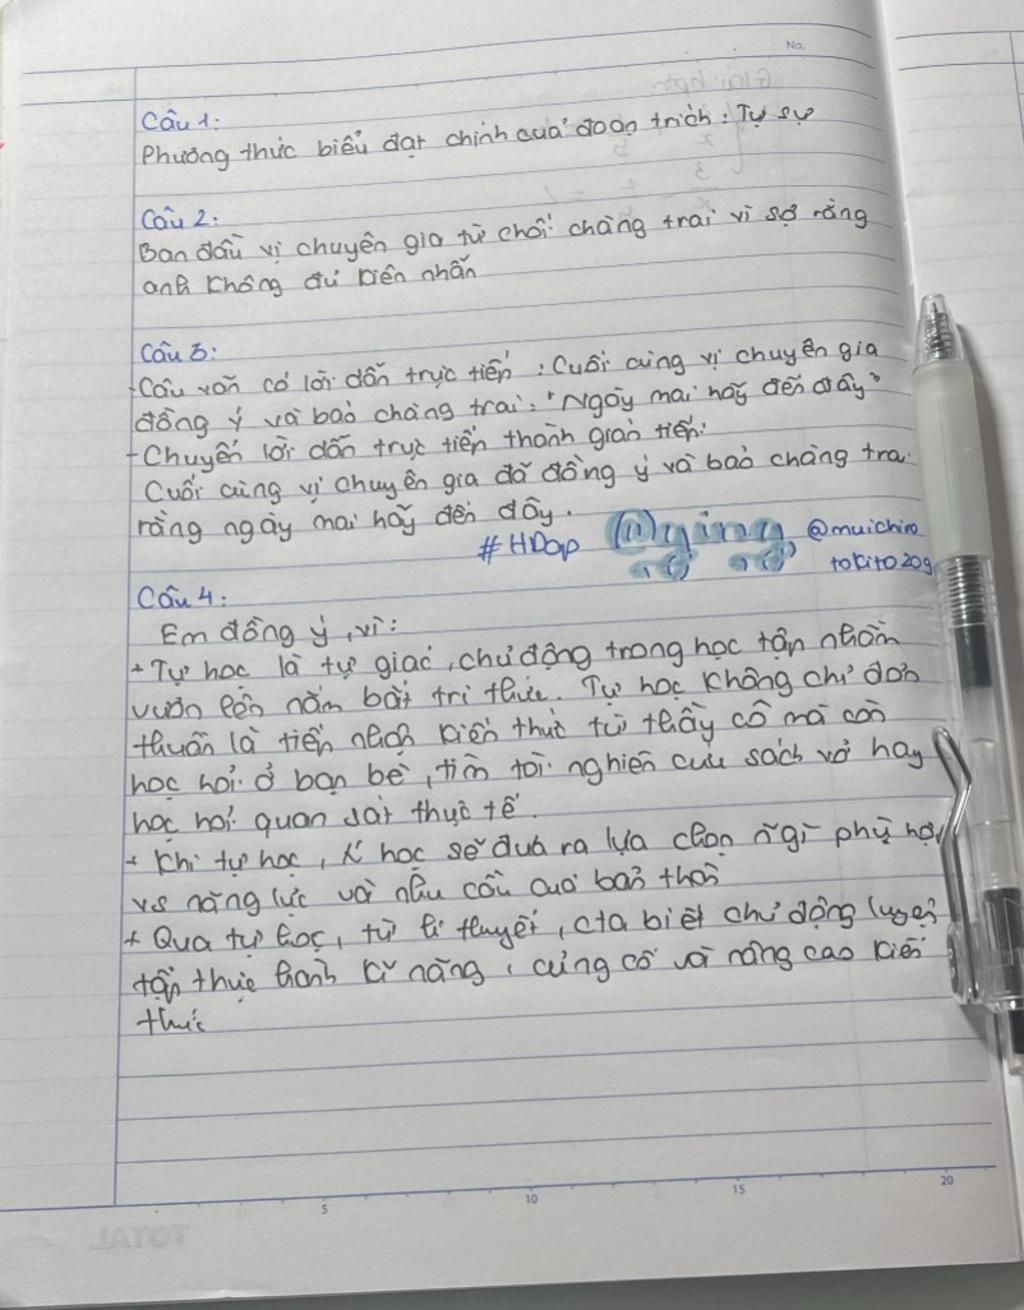 No.
Câu 1:
Phương thức biểu đạt chính của đoạn trích: Tự sự
Câu 2:
Ban đầu vị chuyên gia từ chối chàng trai vì sợ rằng
anh không đủ kiên nhẫn
Câu 3:
- Câu văn có lời dẫn trực tiếp: Cuối cùng vị chuyên gia
đồng ý và bảo chàng trai: "Ngày mai hãy đến đây"
- Chuyển lời dẫn trực tiếp thành gián tiếp:
Cuối cùng vị chuyên gia đã đồng ý và bảo chàng trai
rằng ngày mai hãy đến đây.
#HDap @muichiro
tokito20g
Câu 4:
Em đồng ý, vì:
+ Tự học là tự giác, chủ động trong học tập nhằm
vươn lên nắm bắt tri thức. Tự học không chỉ đơn
thuần là tiếp nhận kiến thức từ thầy cô mà còn
học hỏi ở bạn bè, tìm tòi nghiên cứu sách vở hay
học hỏi quan sát thực tế.
+ Khi tự học, học sẽ đưa ra lựa chọn ~ gì phù hợp
vs năng lực và nhu cầu của bản thân
+ Qua tự học, từ lí thuyết, cta biết chủ động luyện
tập thực hành kĩ năng, củng cố và nâng cao kiến
thức
5 10 15 20
TOTAL